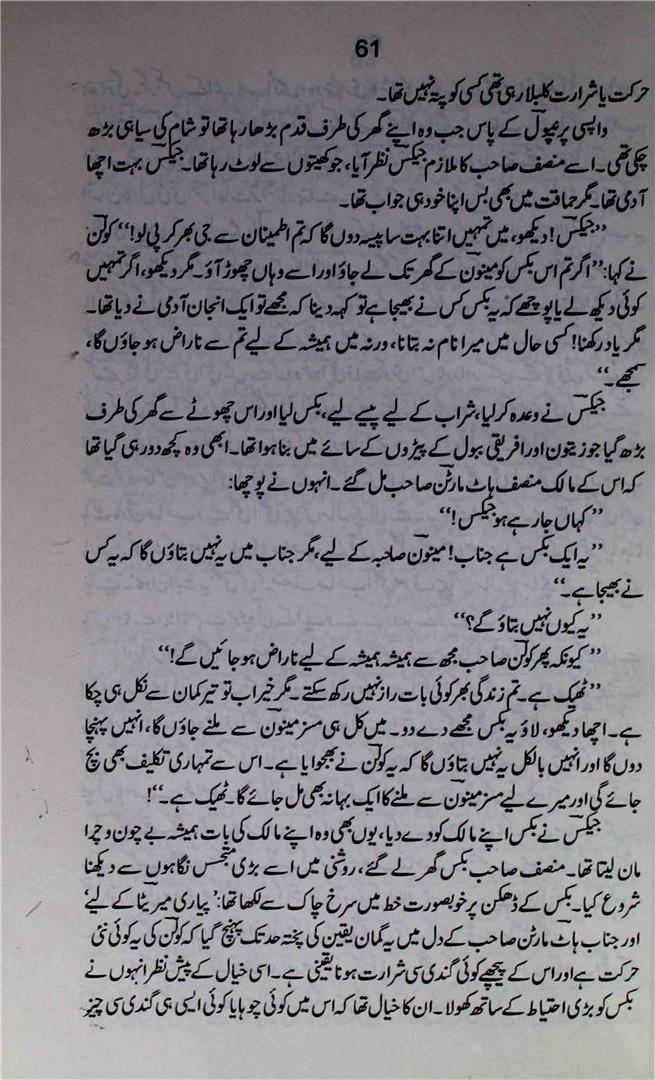 61
حرکت یا شرارت کلبلا رہی تھی کسی کو پتہ نہیں تھا۔
واپسی پر عپول کے پاس جب وہ اپنے گھر کی طرف قدم بڑھا رہا تھا تو شام کی سیاہی بڑھ
چکی تھی۔ اسے منصف صاحب کا ملازم جیکس نظر آیا، جو کھیتوں سے لوٹ رہا تھا۔ جیکس بہت اچھا
آدمی تھا۔ مگر حماقت میں بھی بس اپنا خود ہی جواب تھا۔
’’جیکس! دیکھو، میں تمہیں اتنا بہت سا پیسہ دوں گا کہ تم اطمینان سے جی بھر کر پی لو!‘‘ کولن
نے کہا: ’’اگر تم اس بکس کو مینون کے گھر تک لے جاؤ اور اسے وہاں چھوڑ آؤ۔ مگر دیکھو، اگر تمہیں
کوئی دیکھ لے یا پوچھے کہ یہ بکس کس نے بھیجا ہے تو کہہ دینا کہ مجھے تو ایک انجان آدمی نے دیا تھا۔
مگر یاد رکھنا! کسی حال میں میرا نام نہ بتانا، ورنہ میں ہمیشہ کے لیے تم سے ناراض ہو جاؤں گا،
سمجھے۔‘‘
جیکس نے وعدہ کر لیا، شراب کے لیے پیسے لیے، بکس لیا اور اس چھوٹے سے گھر کی طرف
بڑھ گیا جو زیتون اور افریقی ببول کے پیڑوں کے سائے میں بنا ہوا تھا۔ ابھی وہ کچھ دور ہی گیا تھا
کہ اس کے مالک منصف ہاٹ مارٹن صاحب مل گئے۔ انہوں نے پوچھا:
’’کہاں جا رہے ہو جیکس!‘‘
’’یہ ایک بکس ہے جناب! مینون صاحبہ کے لیے، مگر جناب میں یہ نہیں بتاؤں گا کہ یہ کس
نے بھیجا ہے۔‘‘
’’یہ کیوں نہیں بتاؤ گے؟‘‘
’’کیونکہ پھر کولن صاحب مجھ سے ہمیشہ ہمیشہ کے لیے ناراض ہو جائیں گے!‘‘
’’ٹھیک ہے۔ تم زندگی بھر کوئی بات راز نہیں رکھ سکتے۔ مگر خیر اب تو تیر کمان سے نکل ہی چکا
ہے۔ اچھا دیکھو، لاؤ یہ بکس مجھے دے دو۔ میں کل ہی مسز مینون سے ملنے جاؤں گا، انہیں پہنچا
دوں گا اور انہیں بالکل یہ نہیں بتاؤں گا کہ یہ کولن نے بھجوایا ہے۔ اس سے تمہاری تکلیف بھی بچ
جائے گی اور میرے لیے مسز مینون سے ملنے کا ایک بہانہ بھی مل جائے گا۔ ٹھیک ہے۔‘‘!
جیکس نے بکس اپنے مالک کو دے دیا، یوں بھی وہ اپنے مالک کی بات ہمیشہ بے چون و چرا
مان لیتا تھا۔ منصف صاحب بکس گھر لے گئے، روشنی میں اسے بڑی متجسس نگاہوں سے دیکھنا
شروع کیا۔ بکس کے ڈھکن پر خوبصورت خط میں سرخ چاک سے لکھا تھا: ’پیاری میریٹا کے لیے‘
اور جناب ہاٹ مارٹن صاحب کے دل میں یہ گمان یقین کی پختہ حد تک پہنچ گیا کہ کولن کی یہ کوئی نئی
حرکت ہے اور اس کے پیچھے کوئی گندی سی شرارت ہونا یقینی ہے۔ اسی خیال کے پیش نظر انہوں نے
بکس کو بڑی احتیاط کے ساتھ کھولا۔ ان کا خیال تھا کہ اس میں کوئی چوہا یا کوئی ایسی ہی گندی سی چیز